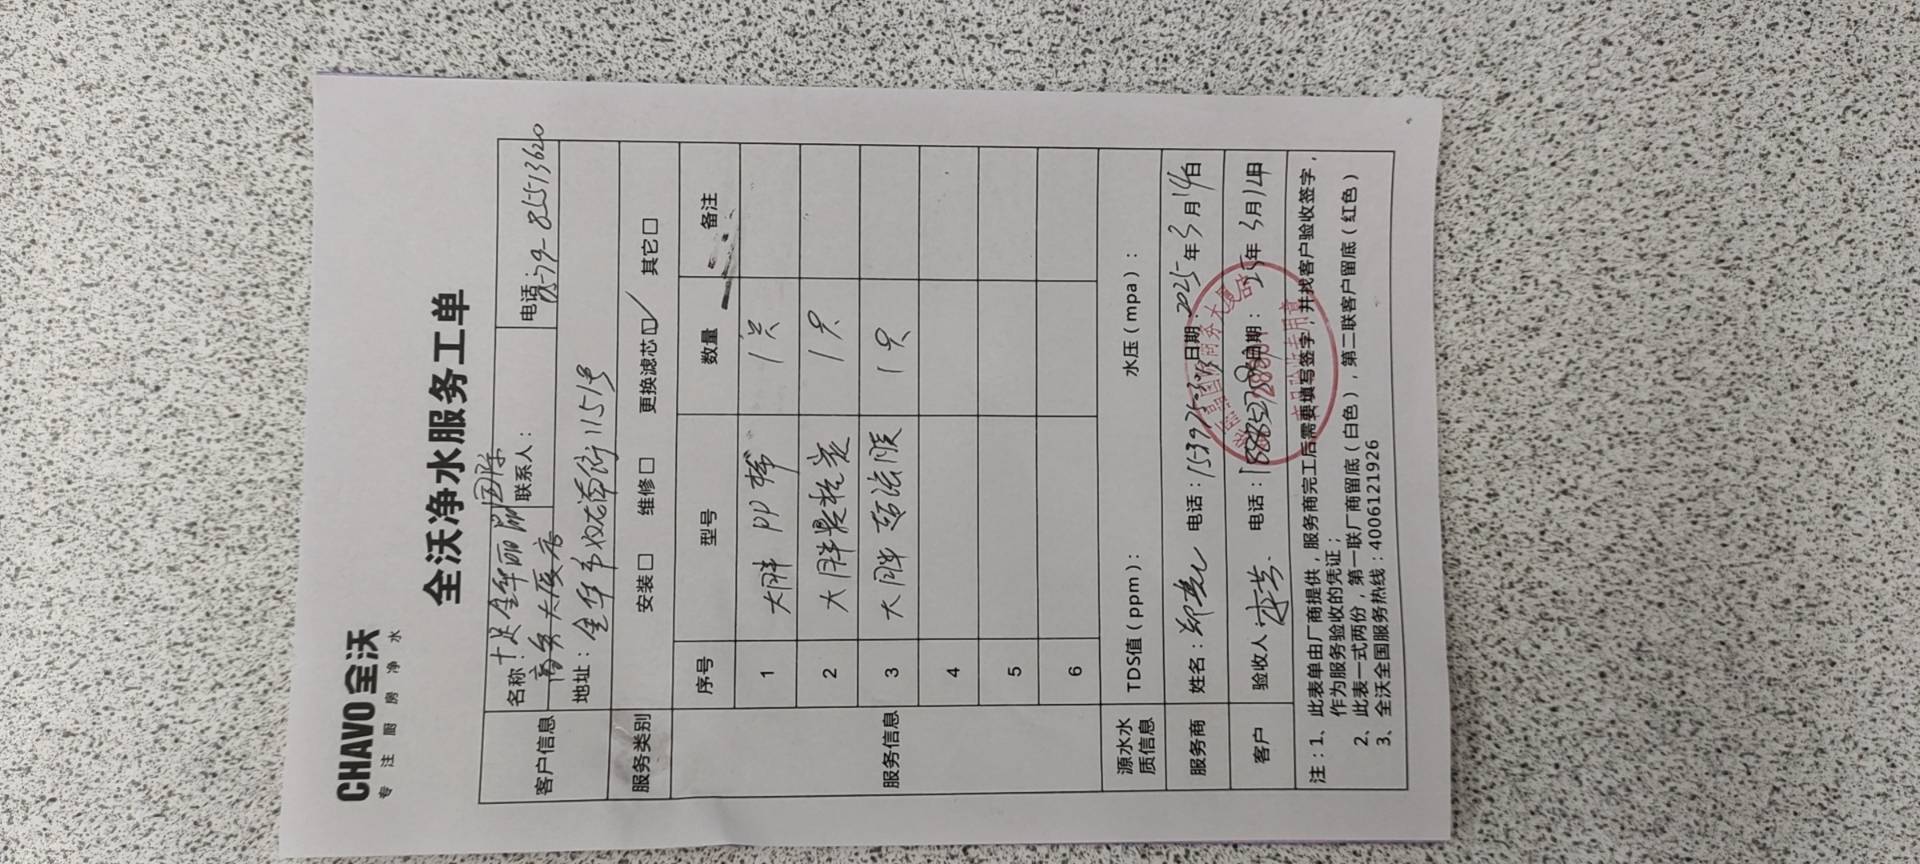 CHAVO 全沃
专注厨房净水
全沃净水服务工单
客户信息
名称：十足金华丽晶国际
商务大厦店
联系人：
电话：0579-85513620
地址：金华市双龙南街1151号
服务类别
安装□ 维修□ 更换滤芯☑ 其它□
服务信息
序号 型号 数量 备注
1 大胖 PP棉 1只
2 大胖 1只
3 大胖 1只
4
5
6
源水水质信息
TDS值（ppm）： 水压（mpa）：
服务商 姓名：郑 电话： 日期：2025年3月14日
客户 验收人 电话： 日期：25年3月14日
注：1、此表单由厂商提供，服务商完工后需要填写签字，并找客户验收签字，
作为服务验收的凭证；
2、此表一式两份，第一联厂商留底（白色），第二联客户留底（红色）
3、全沃全国服务热线：4006121926